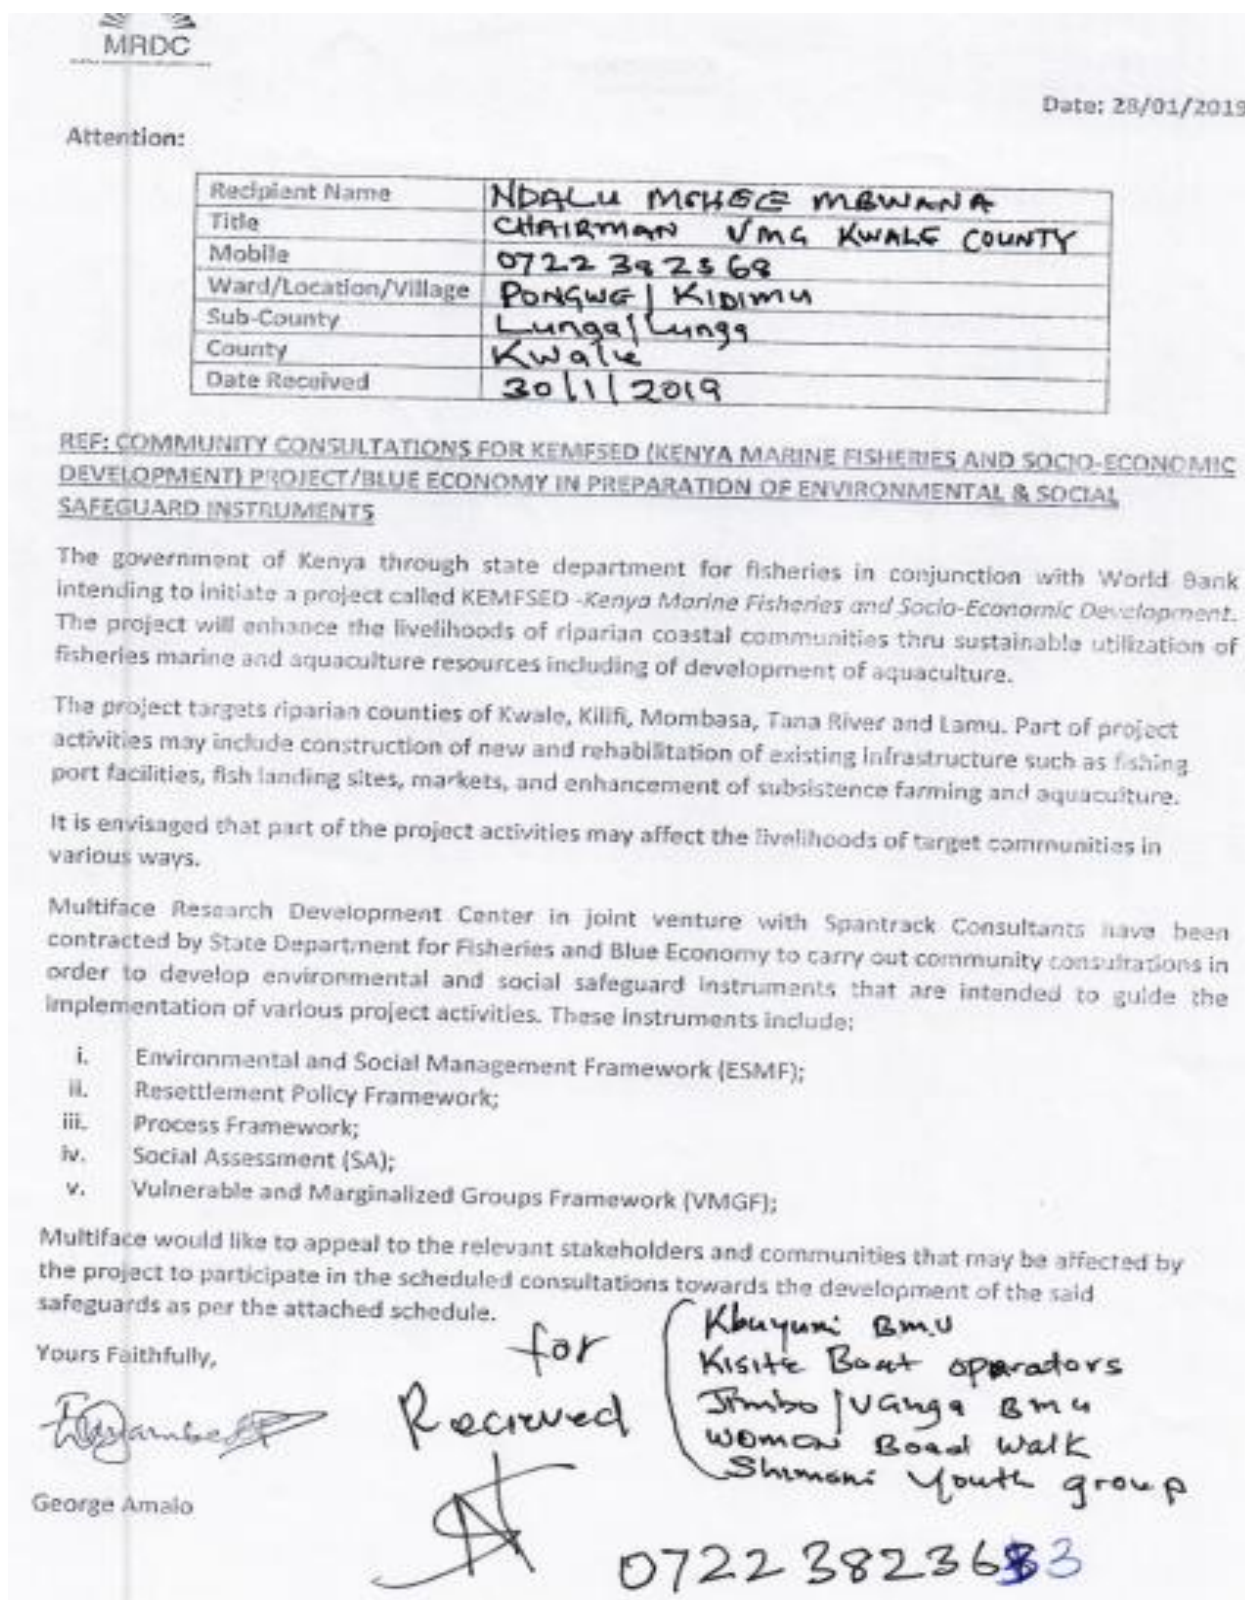 MRDC
Date: 28/01/2019
Attention:
Recipient Name NDALU MCHEE MBWANA
Title CHAIRMAN VMG KWALE COUNTY
Mobile 0722 382368
Ward/Location/Village PONGWE | KIDIMU
Sub-County Lunga/Lunga
County Kwale
Date Received 30/1/2019
REF: COMMUNITY CONSULTATIONS FOR KEMFSED (KENYA MARINE FISHERIES AND SOCIO-ECONOMIC
DEVELOPMENT) PROJECT/BLUE ECONOMY IN PREPARATION OF ENVIRONMENTAL & SOCIAL
SAFEGUARD INSTRUMENTS
The government of Kenya through state department for fisheries in conjunction with World Bank
intending to initiate a project called KEMFSED -Kenya Marine Fisheries and Socio-Economic Development.
The project will enhance the livelihoods of riparian coastal communities thru sustainable utilization of
fisheries marine and aquaculture resources including of development of aquaculture.
The project targets riparian counties of Kwale, Kilifi, Mombasa, Tana River and Lamu. Part of project
activities may include construction of new and rehabilitation of existing infrastructure such as fishing
port facilities, fish landing sites, markets, and enhancement of subsistence farming and aquaculture.
It is envisaged that part of the project activities may affect the livelihoods of target communities in
various ways.
Multiface Research Development Center in joint venture with Spantrack Consultants have been
contracted by State Department for Fisheries and Blue Economy to carry out community consultations in
order to develop environmental and social safeguard instruments that are intended to guide the
implementation of various project activities. These instruments include:
i. Environmental and Social Management Framework (ESMF);
ii. Resettlement Policy Framework;
iii. Process Framework;
iv. Social Assessment (SA);
v. Vulnerable and Marginalized Groups Framework (VMGF);
Multiface would like to appeal to the relevant stakeholders and communities that may be affected by
the project to participate in the scheduled consultations towards the development of the said
safeguards as per the attached schedule.
Yours Faithfully,
George Amalo
for
Recieved
Kbuyuni BMU
Kisite Boat operadors
Jimbo/Vanga BMU
WOMEN Boad Walk
Shimoni Youth group
0722 38236